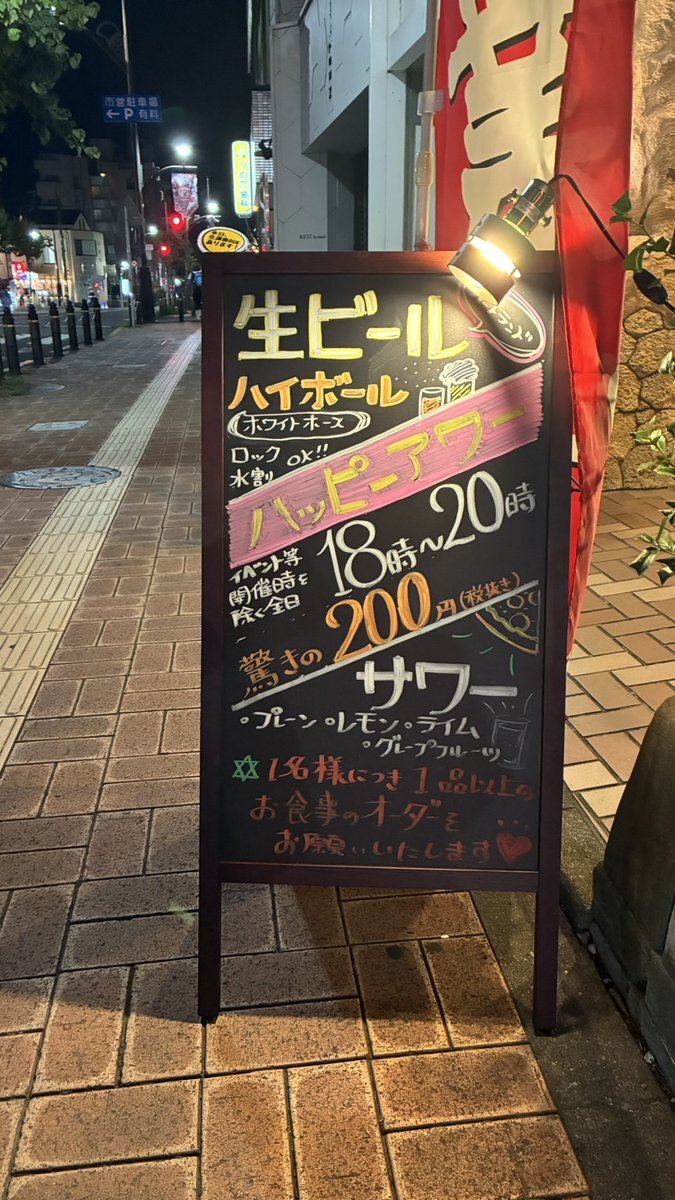 市営駐車場
←P有料
生ビール
ハイボール
ホワイトホース
ロック
水割
OK!!
ハッピーアワー
イベント等
開催時を
除く全日
18時〜20時
驚きの200円(税抜き)
サワー
・プレーン・レモン・ライム
・グレープフルーツ
1名様につき1品以上の
お食事のオーダーを
お願いいたします